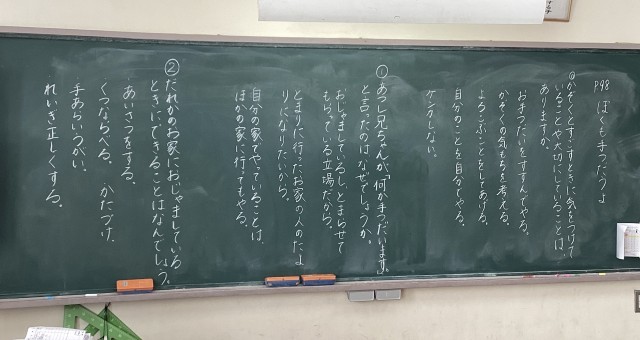 P98 ぼくも手つだうよ
◎かぞくとすごすときに気をつけて
いることや大切にしていることは
ありますか。
お手つだいをすすんでやる。
かぞくの気もちを考える。
よろこぶことをしてあげる。
自分のことを自分でやる。
ケンカしない。
①あつし兄ちゃんが、「何か手つだいます。」
と言ったのはなぜでしょうか。
おじゃましているし、とまらせて
もらっている立場だから。
とまりに行ったお家の人のたよ
りになりたいから。
自分の家でやっていることは、
ほかの家に行ってもやる。
②だれかのお家におじゃましている
ときにできることはなんでしょう。
あいさつをする。
くつならべる。 かたづけ。
手あらいうがい。
れいぎ正しくする。